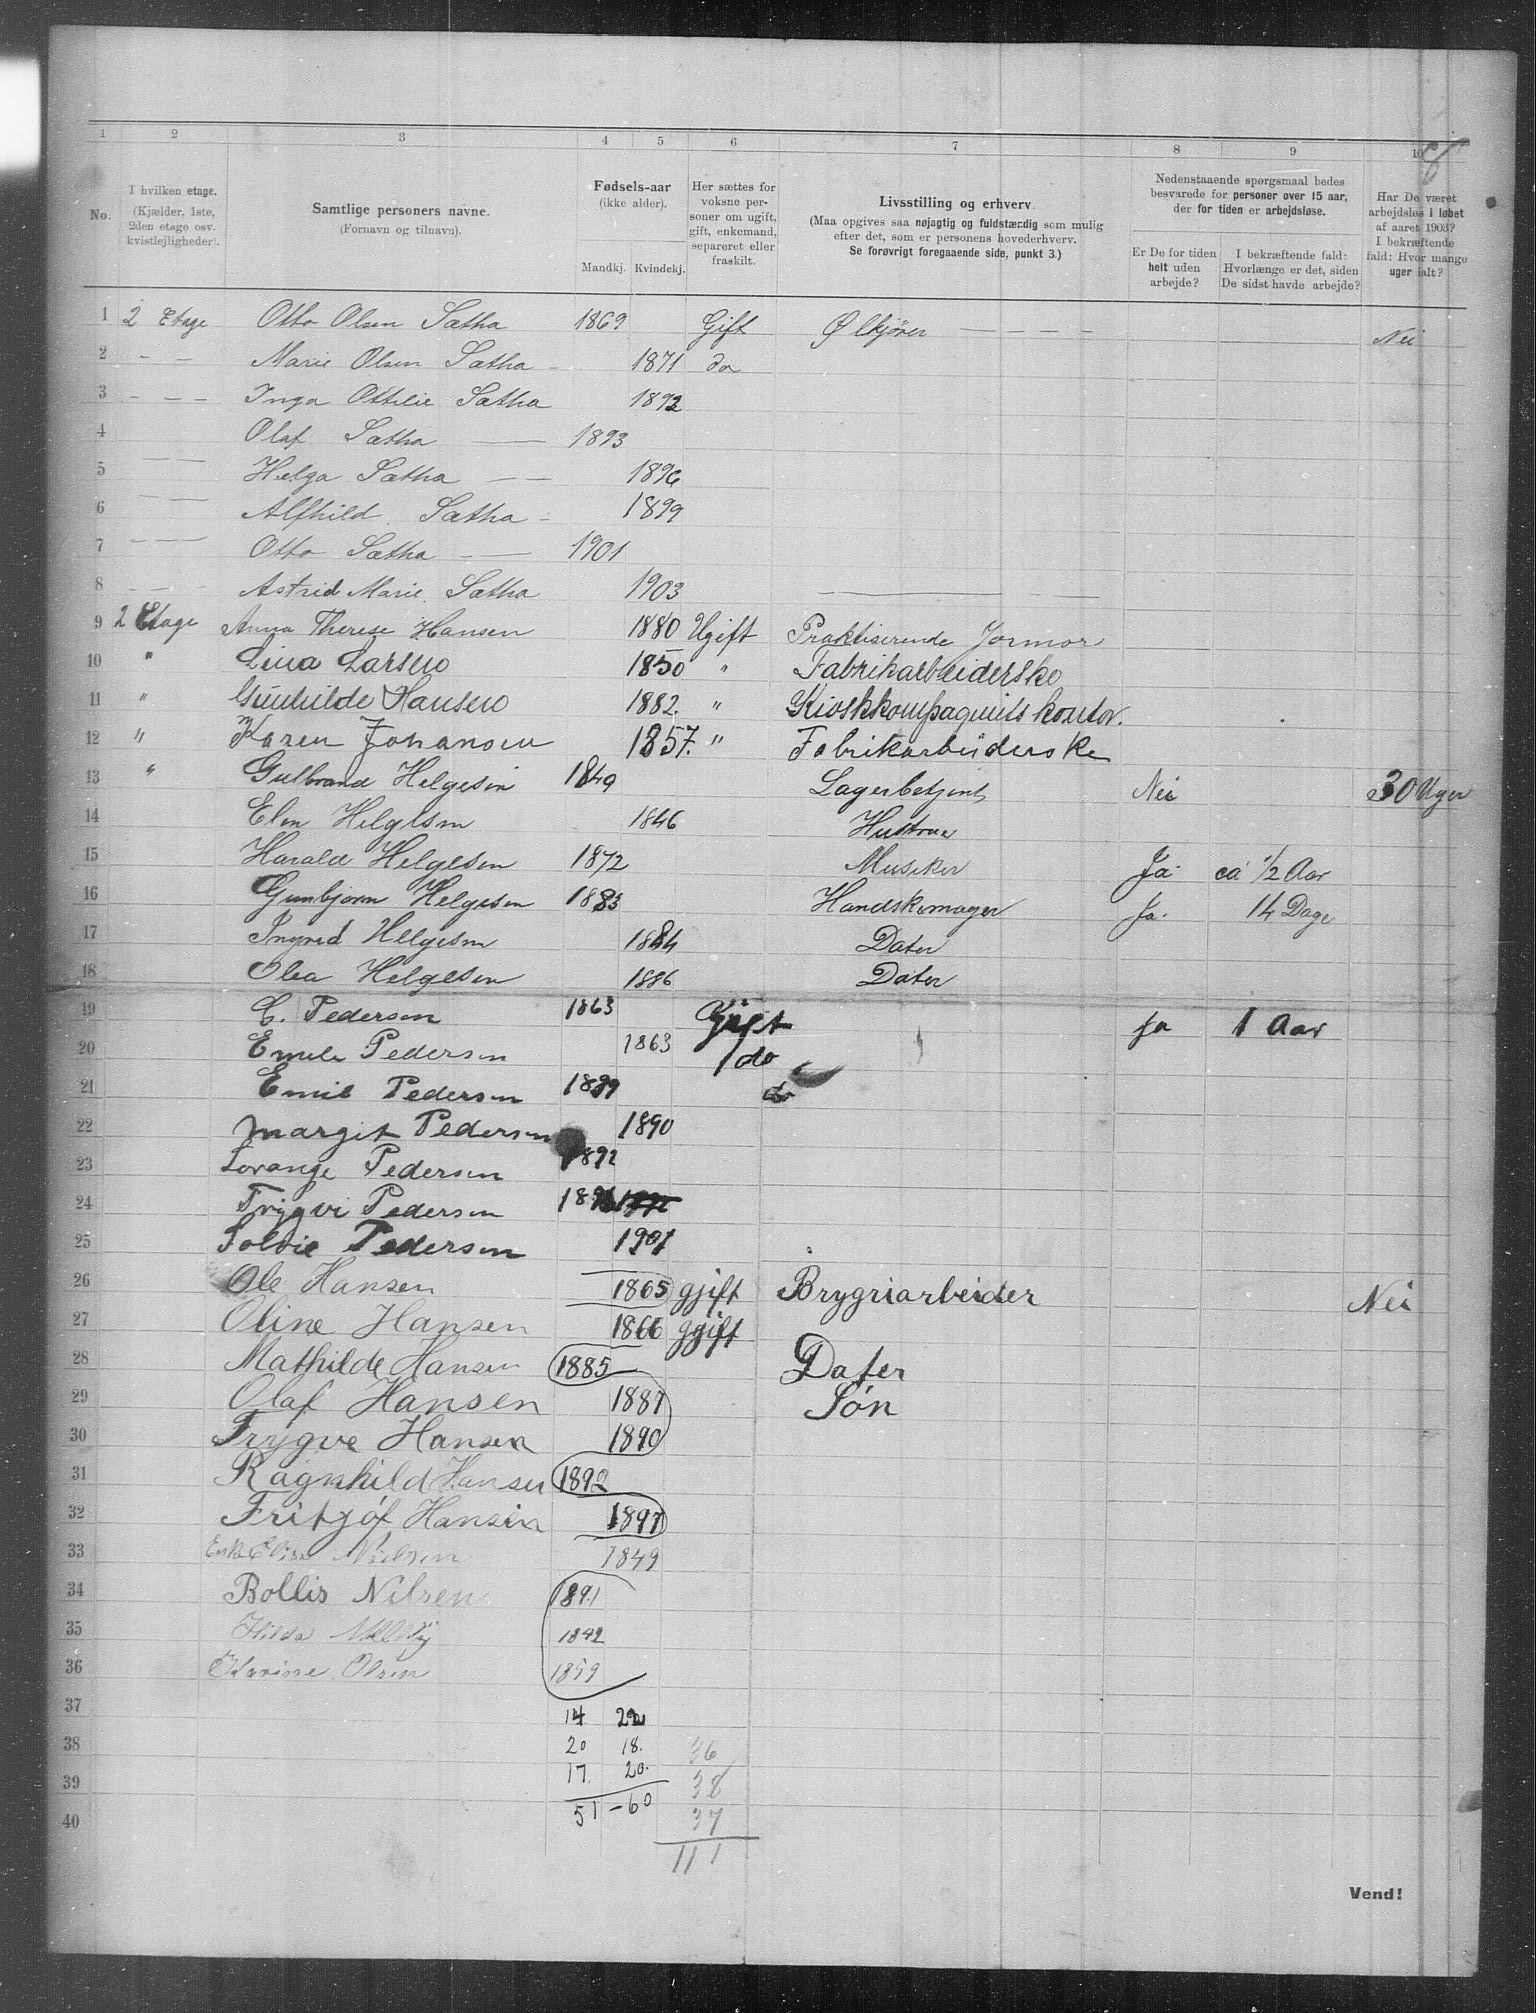 1 2 3 4 5 6 7 8 9 10 8
No.
I hvilken etage.
(Kjælder, 1ste,
2den etage osv.
kvistlejligheder).
Samtlige personers navne.
(Fornavn og tilnavn).
Fødsels-aar
(ikke alder).
Mandkj. Kvindekj.
Her sættes for
voksne per-
soner om ugift,
gift, enkemand,
separeret eller
fraskilt.
Livsstilling og erhverv.
(Maa opgives saa nøjagtig og fuldstændig som mulig
efter det, som er personens hovederhverv.
Se forøvrigt foregaaende side, punkt 3.)
Nedenstaaende spørgsmaal bedes
besvarede for personer over 15 aar,
der for tiden er arbejdsløse.
Er De for tiden
helt uden
arbejde?
I bekræftende fald:
Hvorlænge er det, siden
De sidst havde arbejde?
Har De været
arbejdsløs i løbet
af aaret 1903?
I bekræftende
fald: Hvor mange
uger ialt?
1 2 Etage Otto Olsen Sætha 1869 Gift Ølkjører — — — — Nei
2 — — Marie Olsen Sætha 1871 do
3 — — — Inga Ottilie Sætha 1892
4 Olaf Sætha — 1893
5 — — Helga Sætha — — 1896
6 — — Alfhild Sætha - 1899
7 — — — Otto Sætha — — 1901
8 — — Astrid Marie Sætha 1903 — — — —
9 2 Etage Anna Therese Hansen 1880 Ugift Praktiserende Jormor
10 " Lina Larsen 1850 " Fabrikarbeiderske
11 " Gunhilde Hansen 1882. " Kioskkompagniets kontor.
12 " Karen Johansen 1857. " Fabrikarbeiderske
13 " Gulbrand Helgesen 1849 Lagerbetjent Nei 30 Uger
14 Elen Helgesen 1846 Hustrue
15 Harald Helgesen 1872 Musiker Ja ca 1/2 Aar
16 Gunbjørn Helgesen 1883 Handskemager Ja. 14 Dage
17 Ingrid Helgesen 1884 Dater
18 Olea Helgesen 1886 Dater
19 C. Pedersen 1863 Gift ja 1 Aar
20 Emile Pedersen 1863 do
21 Emil Pedersen 1889
22 Margit Pedersen 1890
23 Lorange Pedersen 1892
24 Trygvi Pedersen
25 Solvie Pedersen 1901
26 Ole Hansen 1865 gjift Brygriarbeider Nei
27 Oline Hansen 1866 gjift
28 Mathilde Hansen 1885 Dater
29 Olaf Hansen 1887 Søn
30 Trygve Hansen 1890
31 Ragnhild Hansen 1892
32 Fritjóf Hansen 1897
33 Enke Elise Nielsen 1849
34 Bollis Nilsen 1891
35 Hilda 1842
36 Karine Olsen 1859
37 14 22
38 20 18. 36
39 17. 20. 38
40 51 - 60 37
111
Vend!